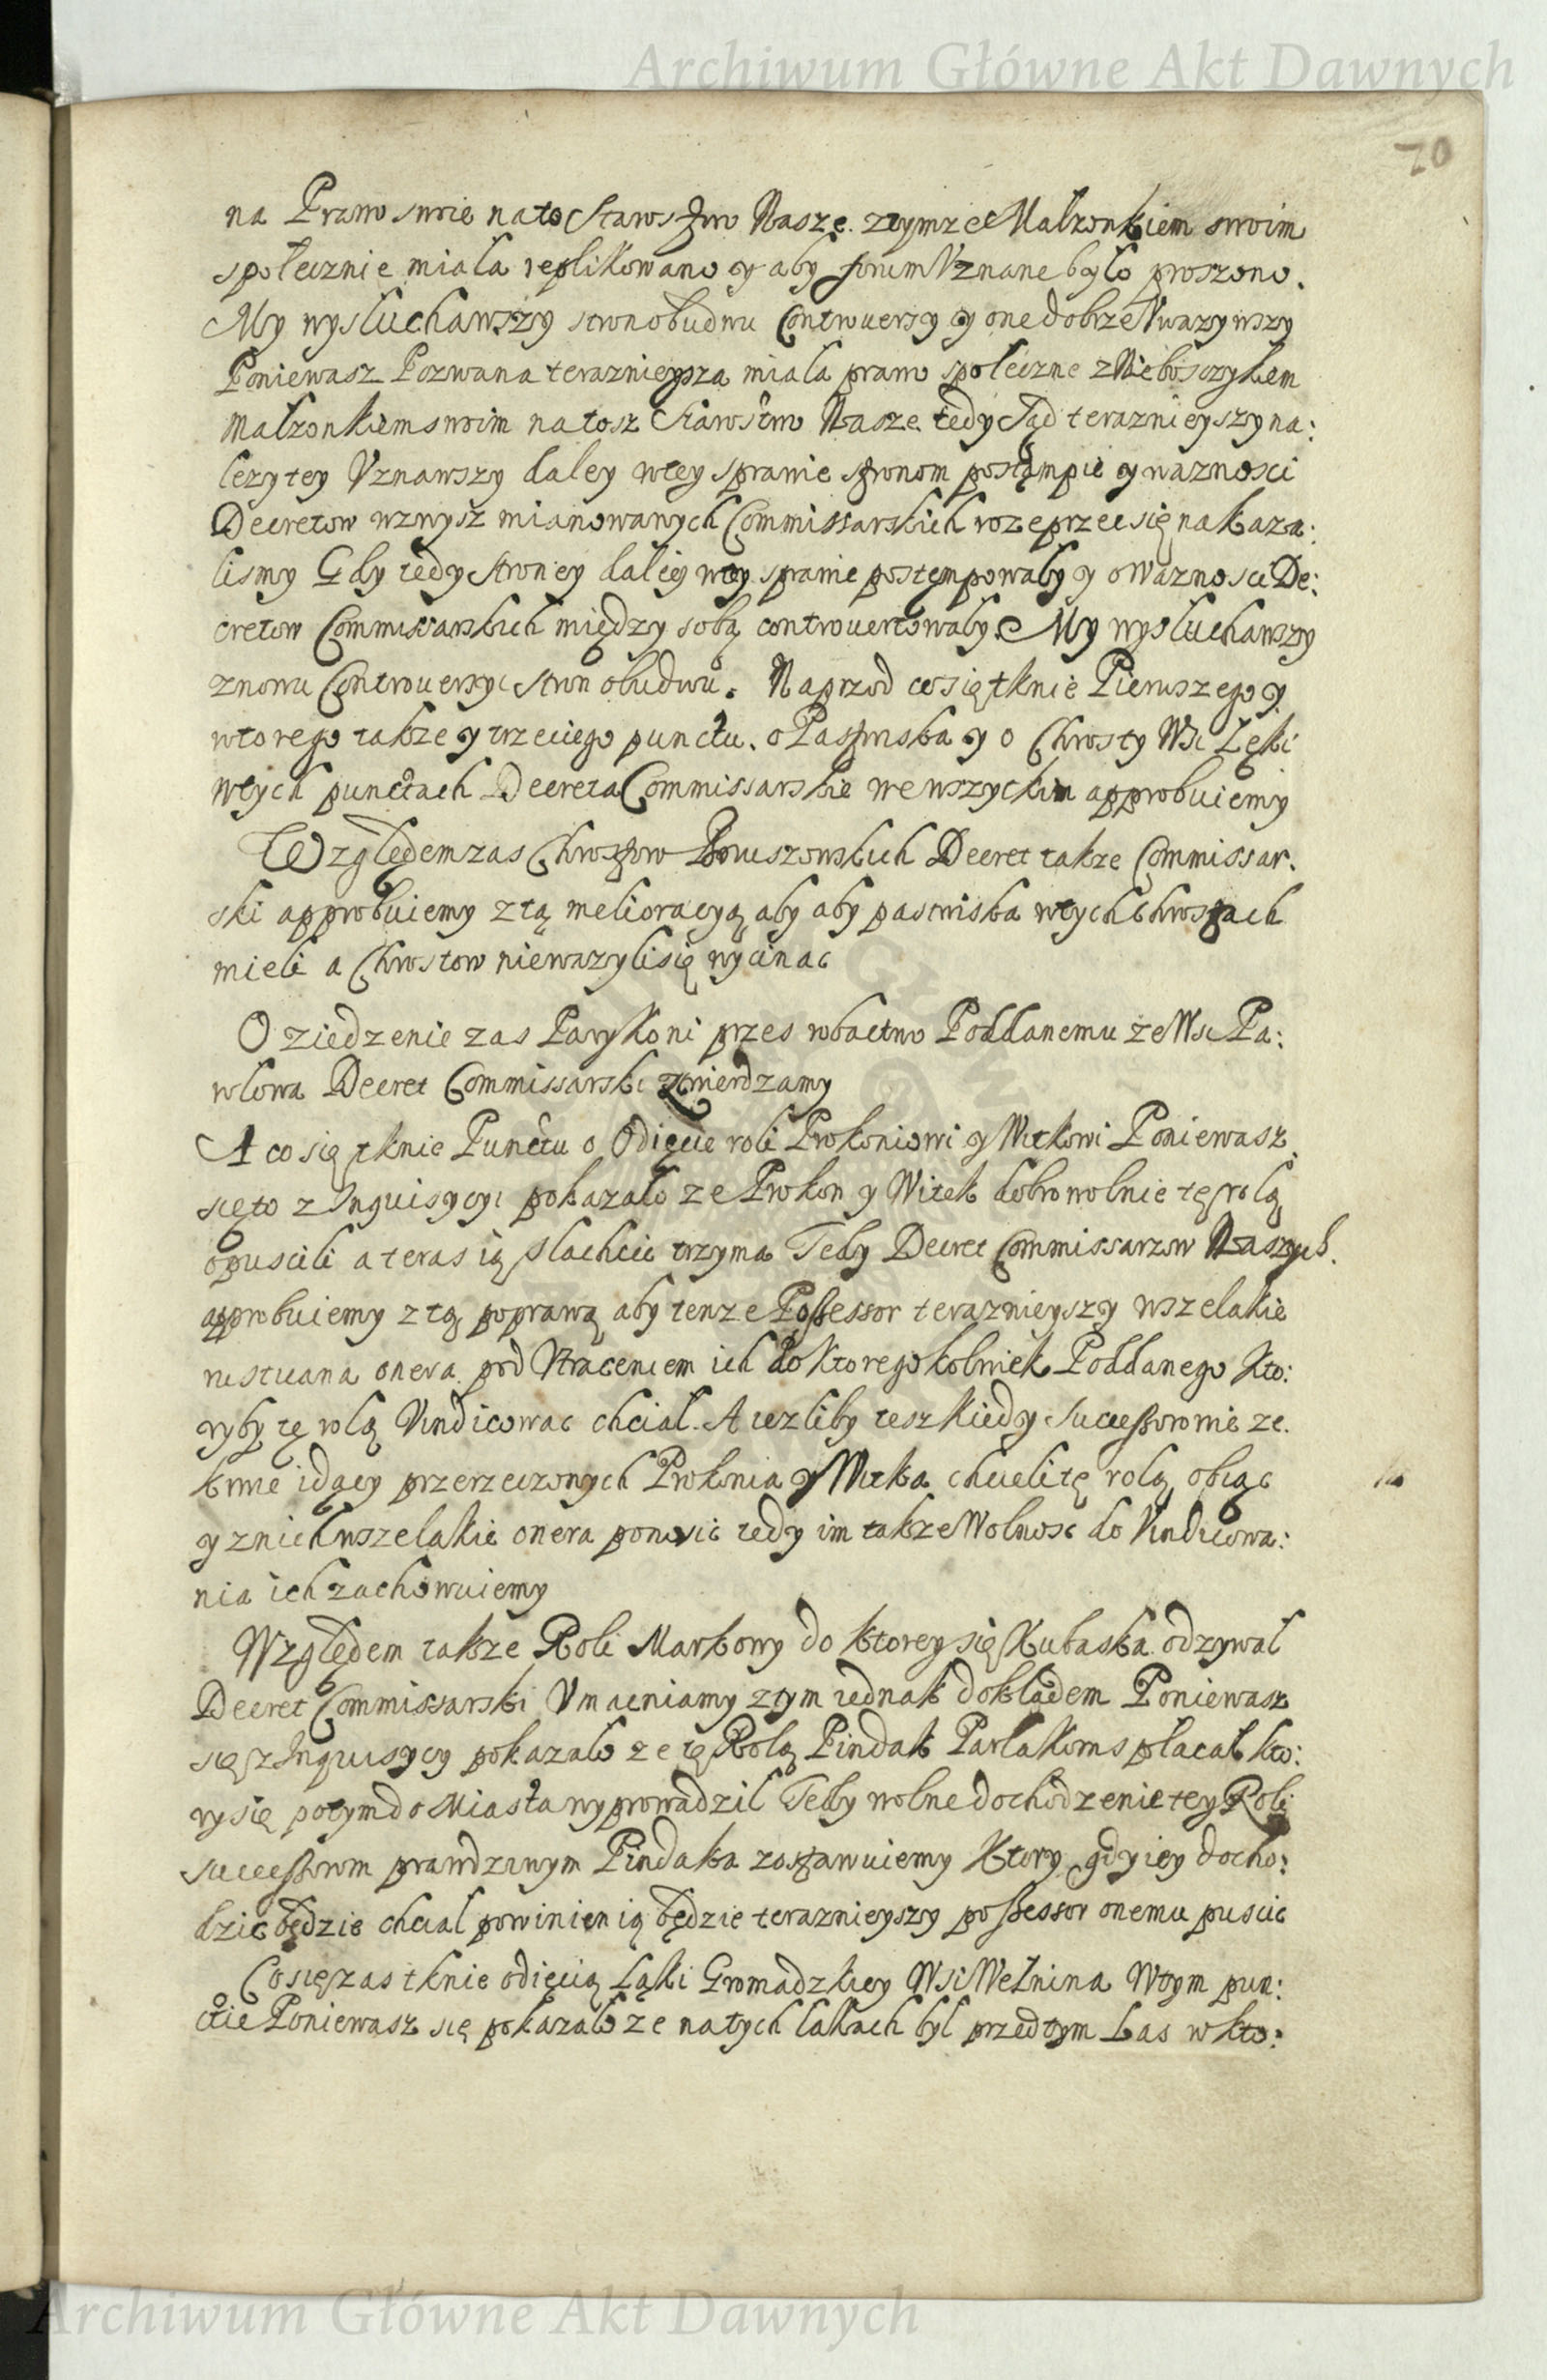 Archiwum Główne Akt Dawnych
70
na Prawo swoie na to Starostwo Nasze. ztymze Małzonkiem swoim
społecznie miała replikowano y aby forum Vznane było proszono.
My wysłuchawszy stron obudwu Controuersy y one dobrze Vwazywszy
Poniewasz Pozwana teraznieysza miała prawo społeczne z Nieboszczykiem
Małzonkiem swoim na tosz Starostwo Nasze tedy Sąd teraznieyszy na:
lezytey Vznawszy daley wtey sprawie stronom postąmpic y waznosci
Decretow wzwysz mianowanych Commissarskich rozeprzec się nakaza:
lismy Gdy tedy strony daley wtey sprawie postempowały y o waznosci De:
cretow Commissarskich między sobą controuertowały. My wysłuchawszy
znowu Controuersyi stron obudwu. Naprzod co się tknie Pierwszego y
wtorego takze y trzeciego punctu. o Pastwiska y o Chrosty Wsi Łęki
wtych punctach Decreta Commissarskie we wszyckim approbuiemy
Względem zas Chrostow Boruszowskich Decret takze Commissar.
ski approbuiemy z tą melioracyą aby aby pastwiska wtych chrostach
mieli a Chrostow niewazyli się wycinac
O ziedzenie zas Pary Koni przes robactwo Poddanemu ze Wsi Pa:
wlowa Decret Commissarski ztwierdzamy
A co się tknie Punctu o Odięcie roli Prokoniowi y Witkowi Poniewasz
się to z Inquisycyi pokazało ze Prokon y Witek dobrowolnie tę rolą
opuscili a teras ią slachcic trzyma Tedy Decret Commissarzow Naszych.
approbuiemy z tą poprawą aby tenze Possessor teraznieyszy wszelakie
rusticana onera pod Vtraceniem ich do ktoregokolwiek Poddanego kto:
ryby tę rolą Vindicowac chciał. A iezliby tesz kiedy Successorowie ze
krwie idący przerzeczonych Prokonia y Witka chcieli tę rolą obiąc
y z nich wszelakie onera ponosic tedy im takze Wolnosc do Vindicowa:
nia ich zachowuiemy
Względem takze Roli Markowy do ktorey się Kubaska odzywał
Decret Commissarski Vmacniamy ztym iednak dokładem Poniewasz
się z Inquisycy pokazało ze tę Rolą Pindak Parlakoms płacał kto:
ry się potym do Miasta wyprowadził Tedy wolne dochodzenie tey Roli
successorom prawdziwym Pindaka zostawuiemy Ktory gdy iey docho:
dzic będzie chciał powinien ią będzie teraznieyszy possessor onemu puscic
Co się zas tknie odięcia Łąki Gromadzkiey Wsi Wełnina Wtym pun:
ctie Poniewasz się pokazało ze na tych łakach był przedtym Las w kto:
Archiwum Główne Akt Dawnych